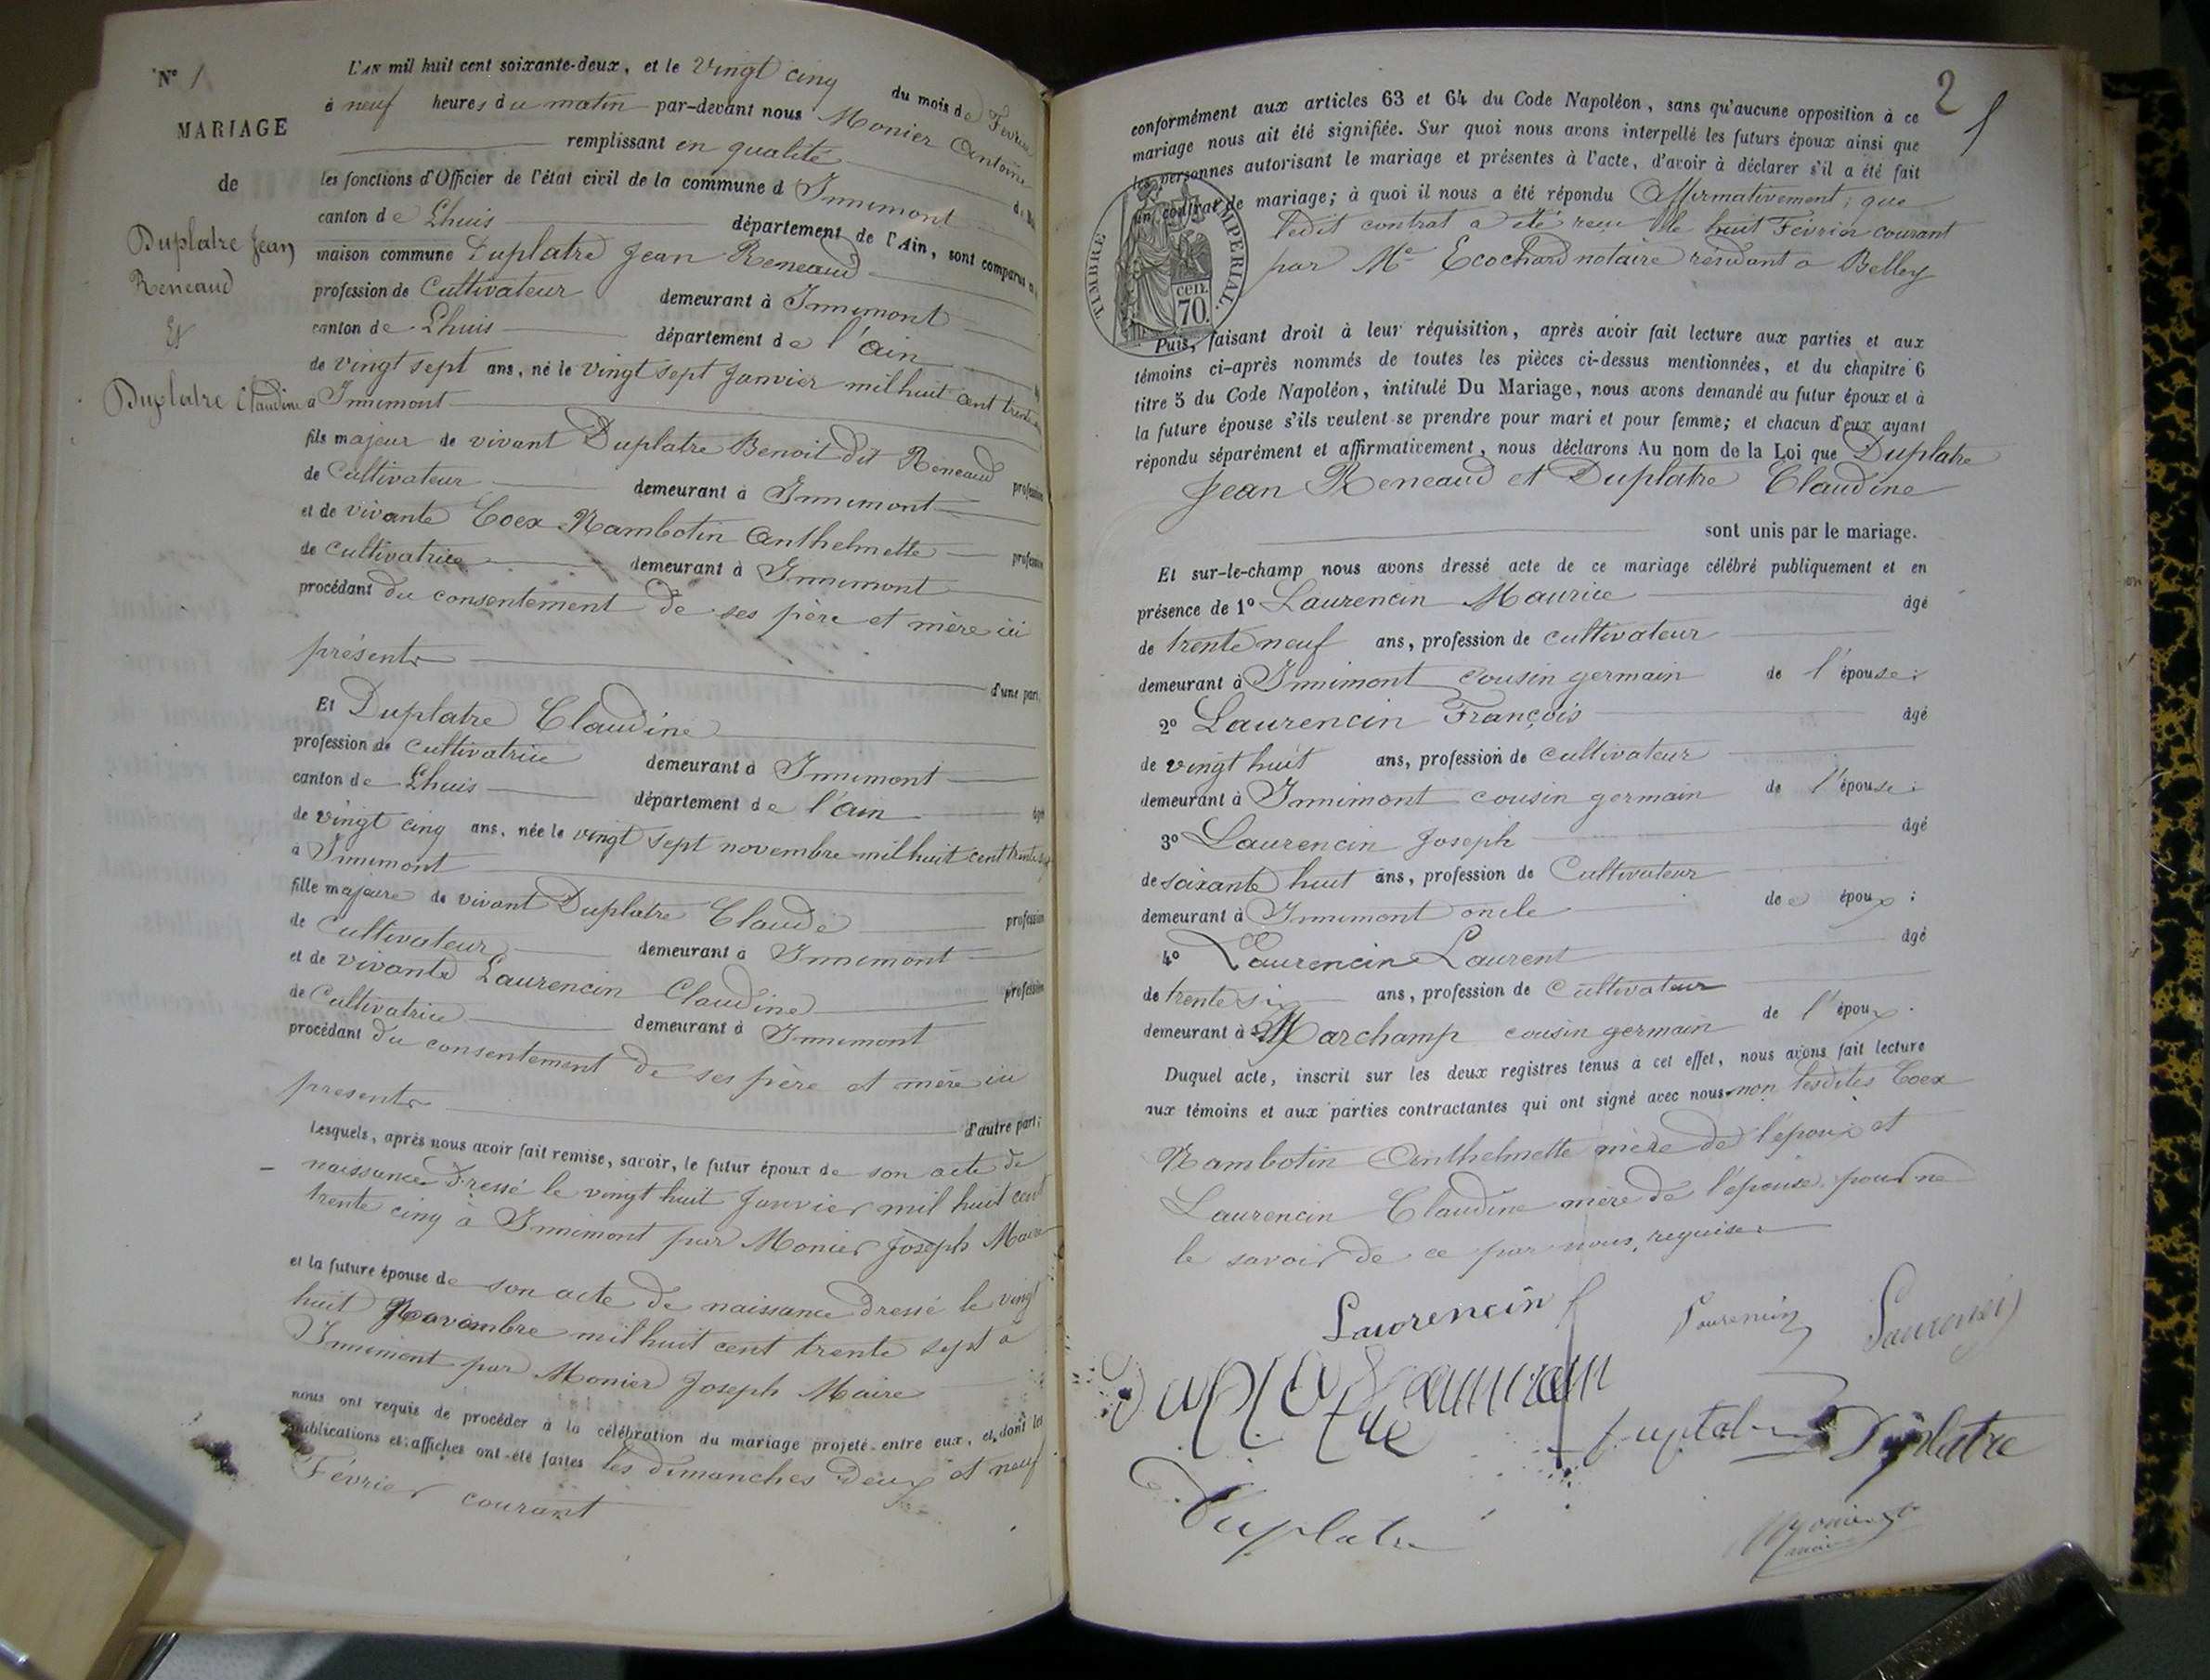 N° 1
MARIAGE
de
Duplatre Jean
Reneaud
Et
Duplatre Claudine
L'AN mil huit cent soixante-deux, et le vingt cinq du mois de Fevrier
à neuf heures du matin par-devant nous Monier Antoine
remplissant en qualité
les fonctions d'Officier de l'état civil de la commune d Innimont
canton de Lhuis département de l'Ain, sont comparus
maison commune Duplatre Jean Reneaud
profession de Cultivateur demeurant à Innimont
canton de Lhuis département de l'ain
de vingt sept ans, né le vingt sept Janvier mil huit cent trente
à Innimont
fils majeur de vivant Duplatre Benoit dit Reneaud profession
de Cultivateur demeurant à Innimont
et de vivante Coex Nambotin Anthelmette profession
de cultivatrice demeurant à Innimont
procédant du consentement de ses père et mère ici
présents d'une part,
Et Duplatre Claudine
profession de cultivatrice demeurant à Innimont
canton de Lhuis département de l'ain âgée
de vingt cinq ans, née le vingt sept novembre mil huit cent trente
à Innimont
fille majeure de vivant Duplatre Claude profession
de Cultivateur demeurant à Innimont
et de vivante Laurencin Claudine profession
de Cultivatrice demeurant à Innimont
procédant du consentement de ses père et mère ici
presents d'autre part;
Lesquels, après nous avoir fait remise, savoir, le futur époux de son acte de
naissance Dressé le vingt huit Janvier mil huit cent
trente cinq à Innimont par Monier Joseph Maire
et la future épouse de son acte de naissance dressé le vingt
huit Novembre mil huit cent trente sept à
Innimont par Monier Joseph Maire
nous ont requis de procéder à la célébration du mariage projeté entre eux, et dont les
publications et affiches ont été faites les dimanches deux et neuf
Février courant
2
1
conformément aux articles 63 et 64 du Code Napoléon, sans qu'aucune opposition à ce
mariage nous ait été signifiée. Sur quoi nous avons interpellé les futurs époux ainsi que
les personnes autorisant le mariage et présentes à l'acte, d'avoir à déclarer s'il a été fait
un contrat de mariage; à quoi il nous a été répondu Affirmativement; que
ledit contrat a été reçu le huit Février courant
par Me Ecochard notaire résidant a Belley
TIMBRE IMPERIAL.
cen.
70.
Puis, faisant droit à leur réquisition, après avoir fait lecture aux parties et aux
témoins ci-après nommés de toutes les pièces ci-dessus mentionnées, et du chapitre 6
titre 5 du Code Napoléon, intitulé Du Mariage, nous avons demandé au futur époux et à
la future épouse s'ils veulent se prendre pour mari et pour femme; et chacun d'eux ayant
répondu séparément et affirmativement, nous déclarons Au nom de la Loi que Duplatre
Jean Reneaud et Duplatre Claudine
sont unis par le mariage.
Et sur-le-champ nous avons dressé acte de ce mariage célébré publiquement et en
présence de 1° Laurencin Maurice âgé
de trente neuf ans, profession de cultivateur
demeurant à Innimont cousin germain de l'épouse:
2° Laurencin François âgé
de vingt huit ans, profession de cultivateur
demeurant à Innimont cousin germain de l'épouse:
3° Laurencin Joseph âgé
de soixante huit ans, profession de Cultivateur
demeurant à Innimont oncle de époux:
4° Laurencin Laurent âgé
de trente six ans, profession de Cultivateur
demeurant à Marchamp cousin germain de l'époux.
Duquel acte, inscrit sur les deux registres tenus à cet effet, nous avons fait lecture
aux témoins et aux parties contractantes qui ont signé avec nous non lesdites Coex
Nambotin Anthelmette mère de l'époux et
Laurencin Claudine mère de l'épouse pour ne
le savoir de ce par nous requises
Laurencin f
Laurencin
Laurencin
Duplatre
Duplatre
Duplatre